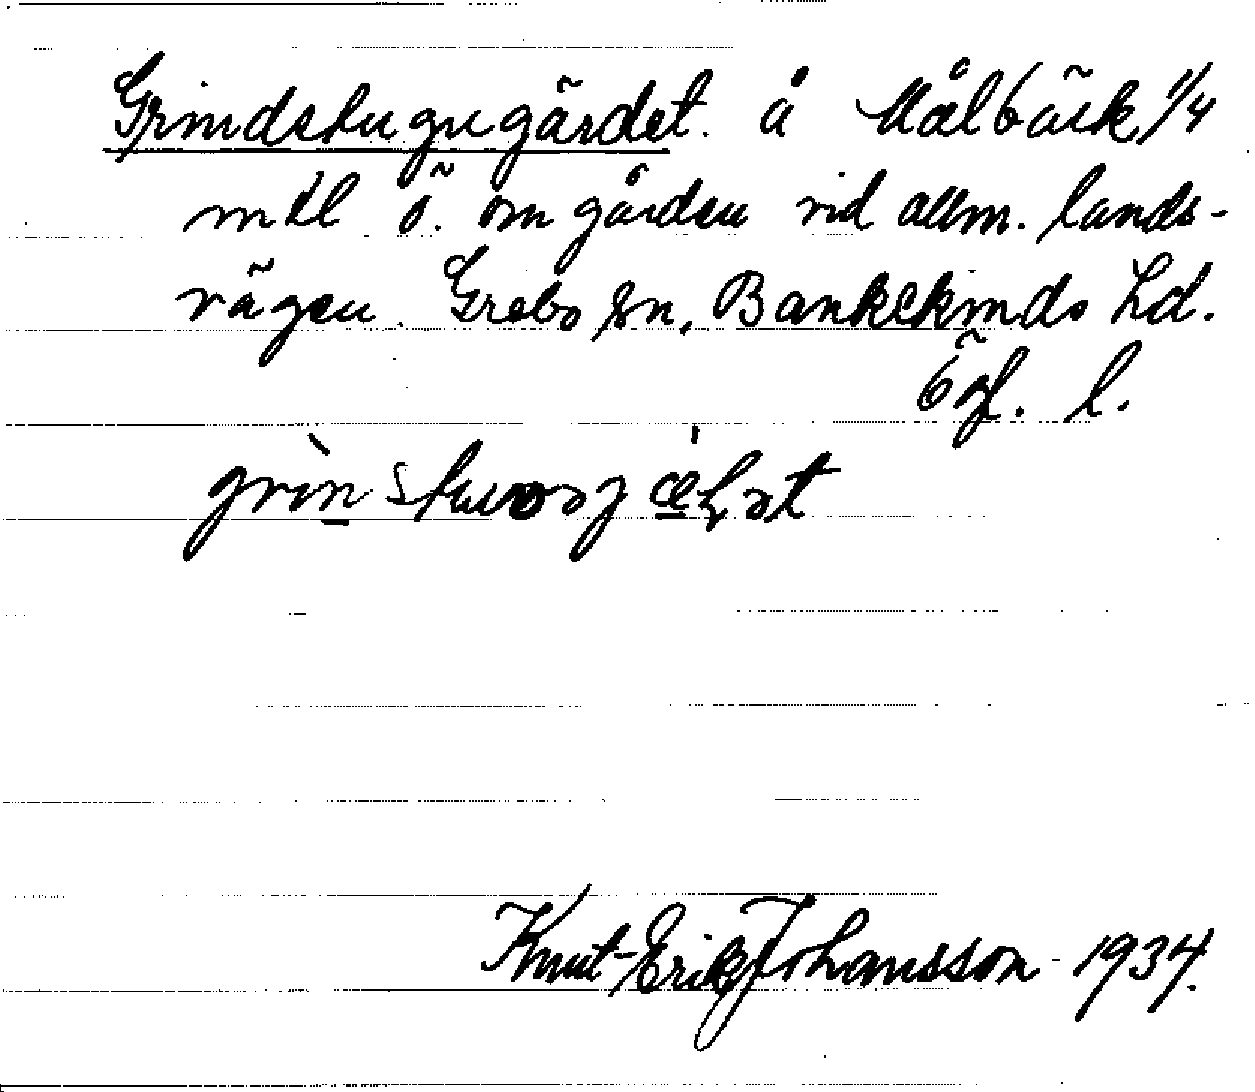 Grindstugugärdet. å Målbäck 1/4
mtl ö. om gården vid allm. lands-
vägen. Grebo sn, Bankekinds hd.
Ögl. l.
Knut-Erik Johansson 1934.